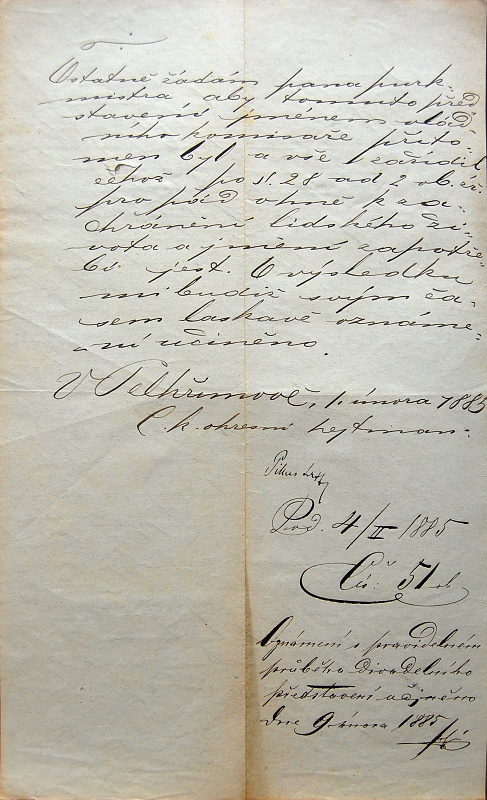 Ostatně žádám pana purk-
mistra aby tomuto před
stavení jménem vlád-
ního komisaře příto-
men byl a vše zařídil
čehož po §. 28 ad 2 ob. ř.
pro pád ohně k za-
chránění lidského ži-
vota a jmění zapotře-
bí jest. O výsledku
mi budiž svým ča-
sem laskavě oznáme-
ní učiněno.
V Pelhřimově, 1. února 1885
C. k. okresní hejtman:
Pod. 4/II 1885
Čís: 51 ob
Oznámení o pravidelném
průběhu divadelního
představení učiněno
dne 9 února 1885